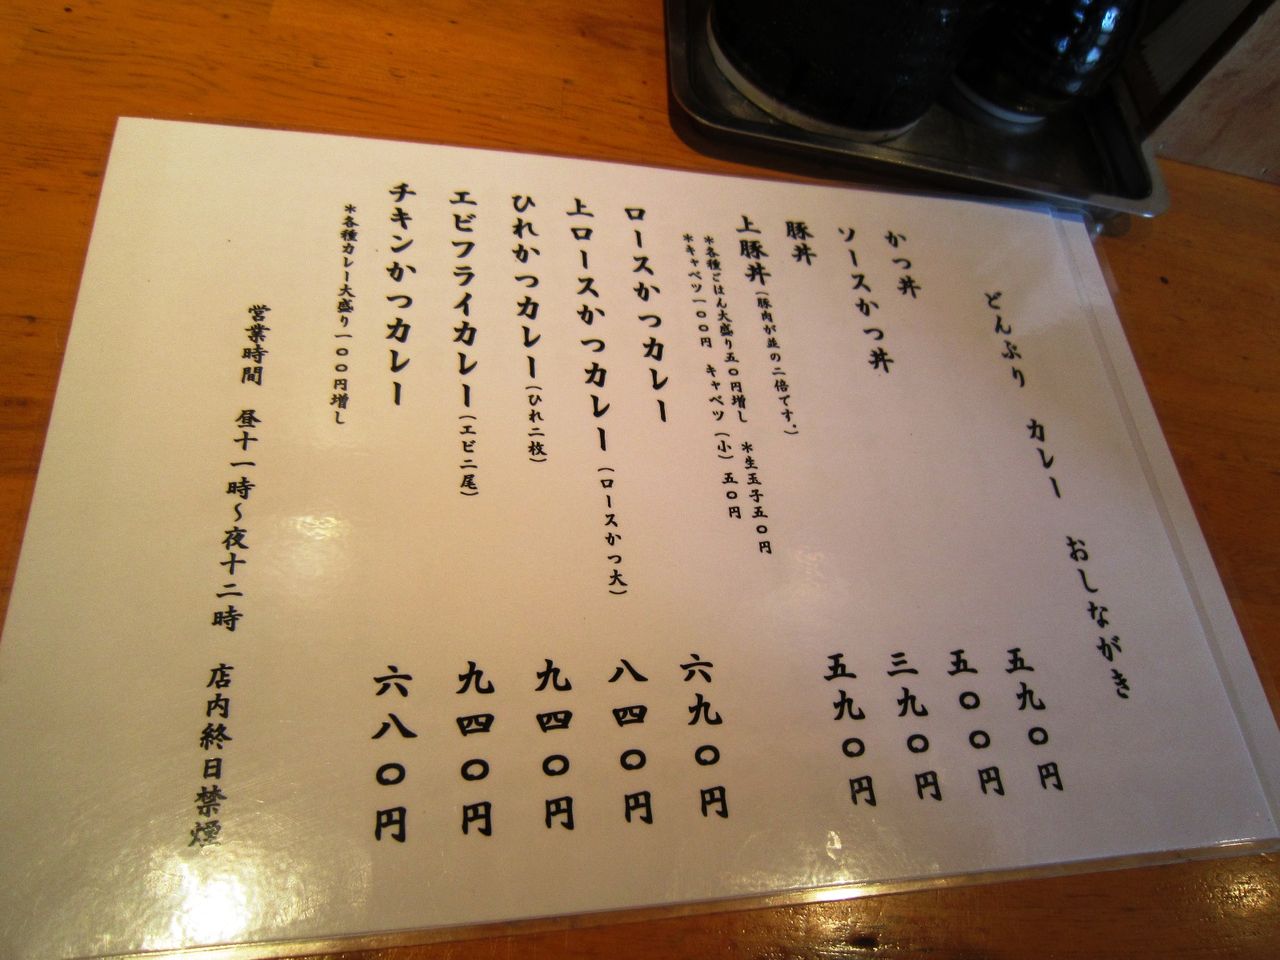 どんぶり カレー おしながき
かつ丼 五九〇円
ソースかつ丼 五〇〇円
豚丼 三九〇円
上豚丼(豚肉が並の二倍です。) 五九〇円
*各種ごはん大盛り五〇円増し *生玉子五〇円
*キャベツ一〇〇円 キャベツ(小)五〇円
ロースかつカレー 六九〇円
上ロースかつカレー(ロースかつ大) 八四〇円
ひれかつカレー(ひれ二枚) 九四〇円
エビフライカレー(エビ二尾) 九四〇円
チキンかつカレー 六八〇円
*各種カレー大盛り一〇〇円増し
営業時間 昼十一時~夜十二時 店内終日禁煙